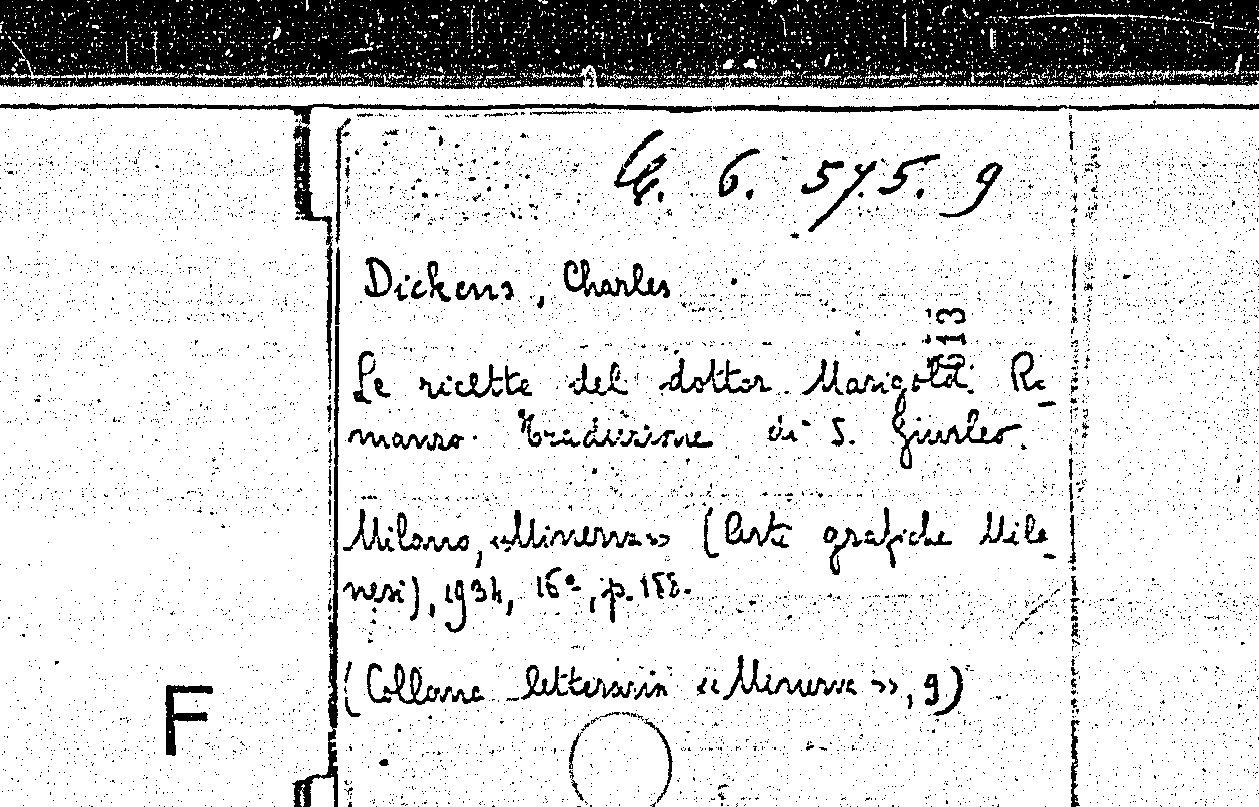 6. 575. 9
Dickens, Charles
513
Le ricette del dottor Marigold. Ro-
manzo. Traduzione di S. Giurleo.
Milano, «Minerva» (Arti grafiche Mila-
nesi), 1934, 16º, p. 188.
(Collana letteraria «Minerva», 9)
F